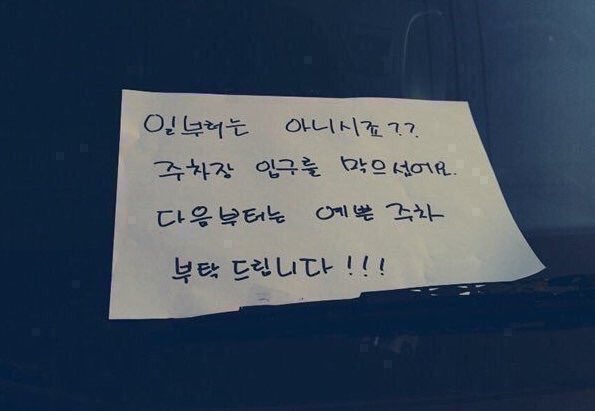 일부러는 아니시죠??
주차장 입구를 막으셨어요.
다음부터는 예쁜 주차
부탁드립니다!!!